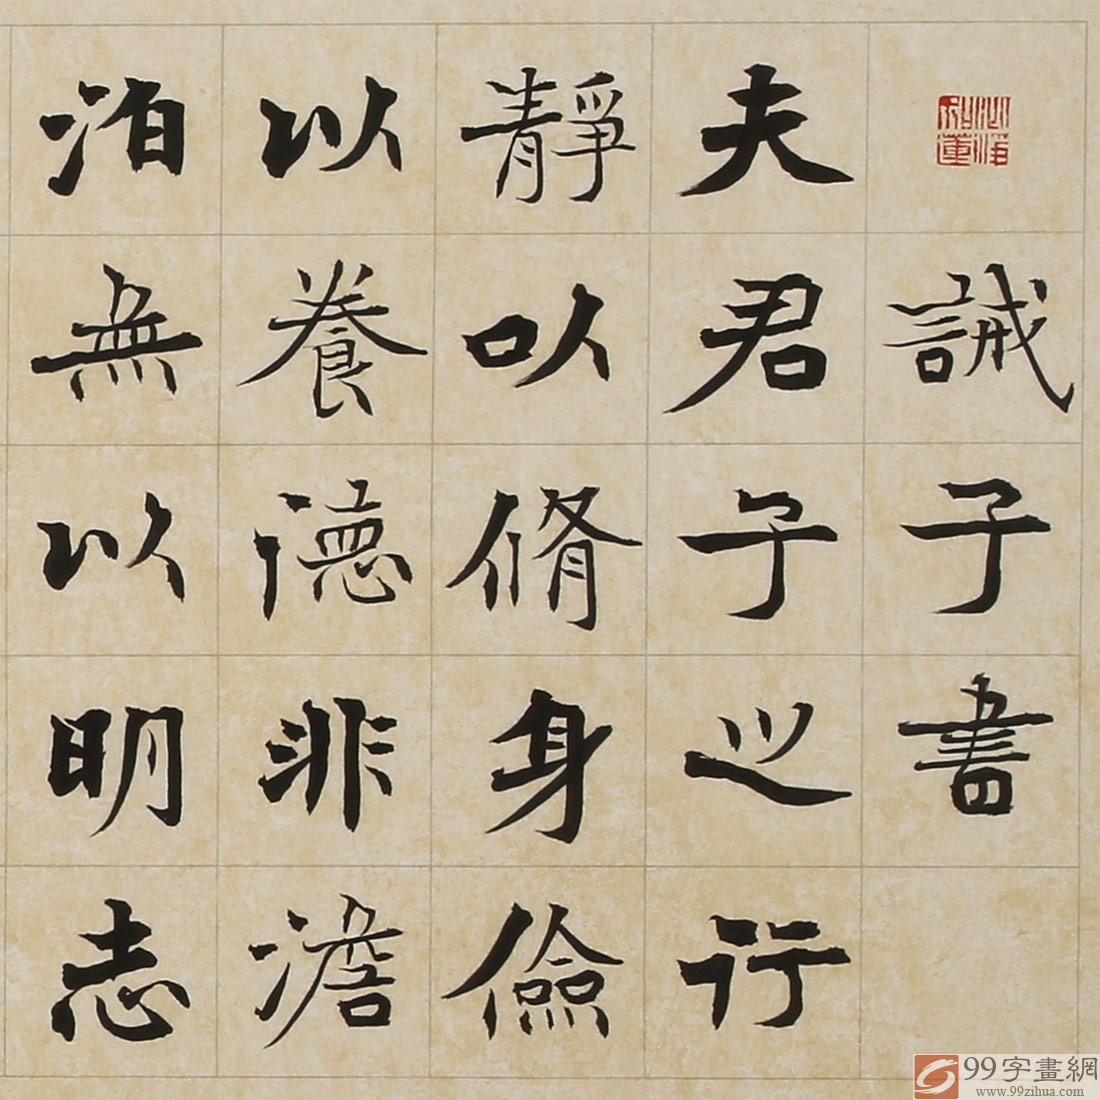 誡子書
夫君子之行
靜以脩身儉
以養德非澹
泊無以明志
99字畫網
www.99zihua.com